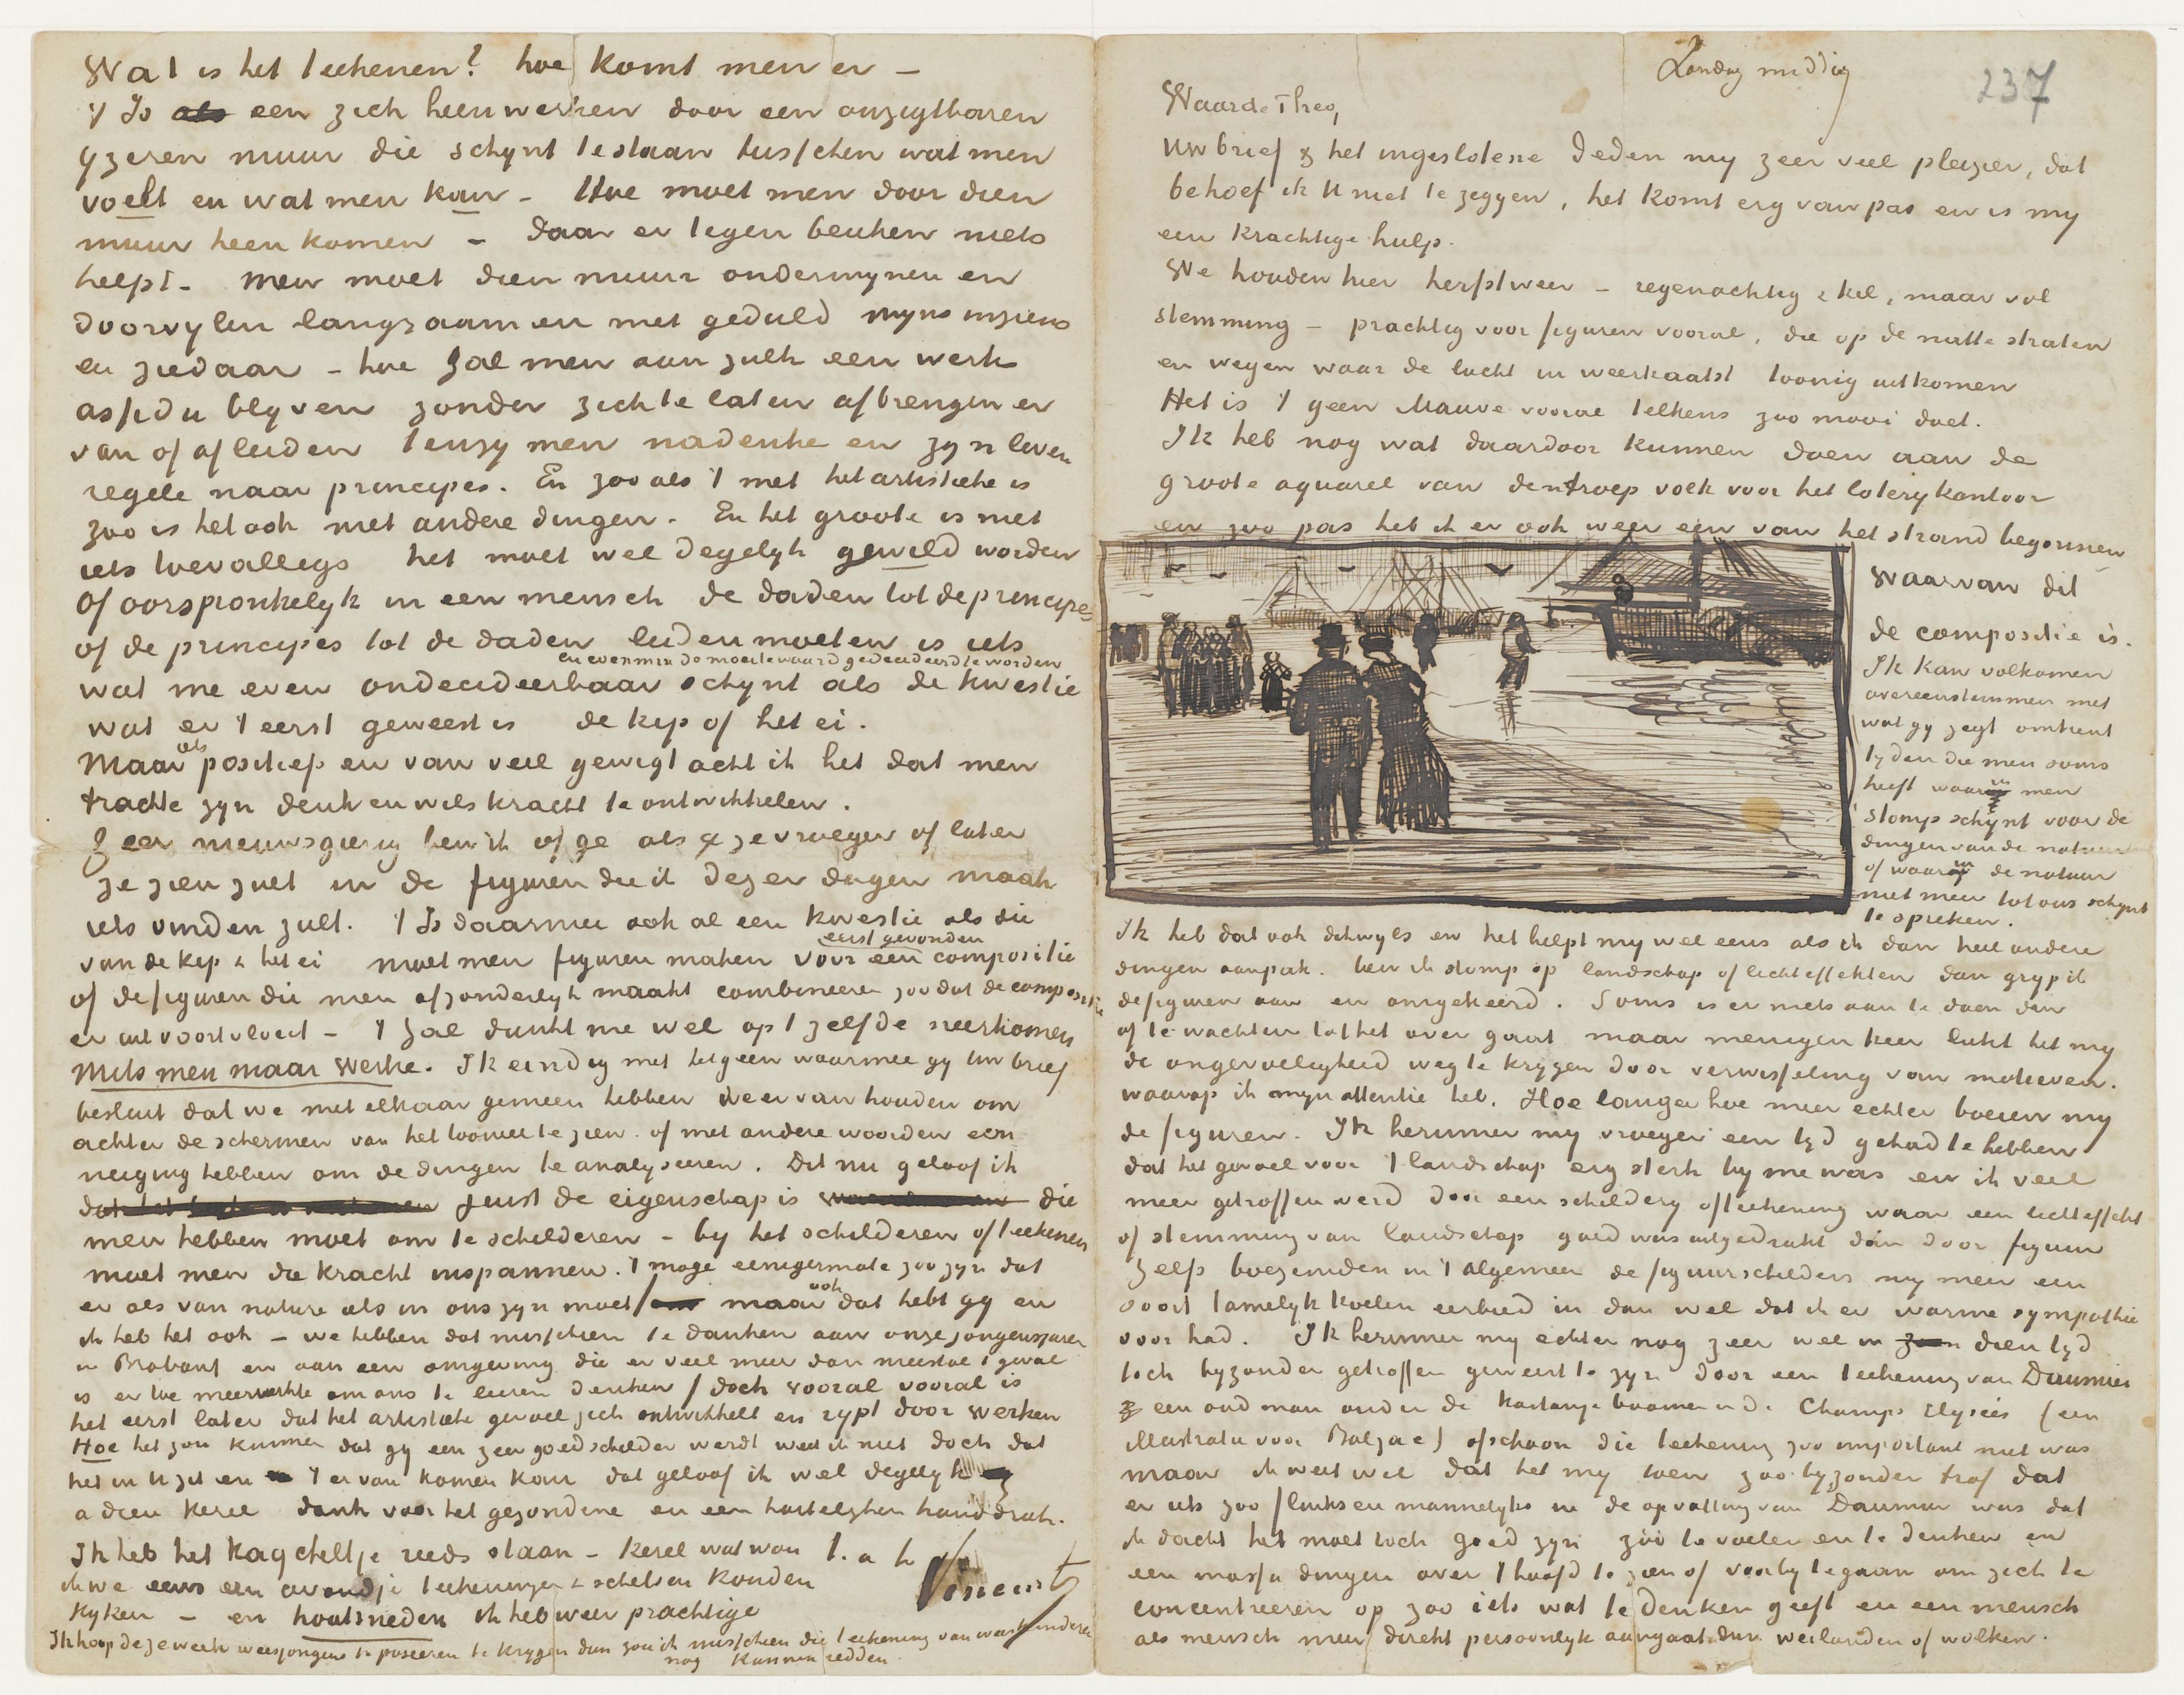 Wat is het teekenen? hoe komt men er –
't Is als een zich heenwerken door een onzigtbaren
yzeren muur die schynt te staan tusschen wat men
voelt en wat men kan – Hoe moet men door dien
muur heen komen – daar er tegen beuken niets
helpt – men moet dien muur ondermynen en
doorvylen langzaam en met geduld myns inziens
en ziedaar – hoe zal men aan zulk een werk
assidu blyven zonder zich te laten afbrengen er
van of afleiden tenzy men nadenke en zyn leven
regele naar principes. En zooals 't met het artistieke is
zoo is het ook met andere dingen. En het groote is niet
iets toevalligs het moet wel degelyk gewild worden
Of oorspronkelyk in een mensch de daden tot de principes
of de principes tot de daden leiden moeten is iets
en evenmin de moeite waard gedecideerd te worden
wat me even ondecideerbaar schynt als de kwestie
wat er 't eerst geweest is de kip of het ei.
Maar als positief en van veel gewigt acht ik het dat men
trachte zyn denk en wilskracht te ontwikkelen.
Zeer nieuwsgierig ben ik of ge als ge ze vroeger of later
ze zien zult in de figuren die ik dezer dagen maak
iets vinden zult. 't Is daarmee ook al een kwestie als die
van de kip & het ei moet men figuren maken voor een eerst gevonden compositie
of de figuren die men afzonderlyk maakt combineeren zoodat de compositie
er uit voortvloeit – 't Zal dunkt me wel op 't zelfde neerkomen
mits men maar werke. Ik eindig met hetgeen waarmee gy Uw brief
besluit dat we met elkaar gemeen hebben we er van houden om
achter de schermen van het tooneel te zien. of met andere woorden een
neiging hebben om de dingen te analyseeren. Dit nu geloof ik
juist de eigenschap is die
men hebben moet om te schilderen – by het schilderen of teekenen
moet men die kracht inspannen. 't moge eenigermate zoo zyn dat
er als van nature iets in ons zyn moet maar ook dat hebt gy en
ik heb het ook – we hebben dat misschien te danken aan onze jongensjaren
in Brabant en aan een omgeving die er veel meer dan meestal 't geval
is er toe meewerkte om ons te leeren denken / doch vooral vooral is
het eerst later dat het artistieke gevoel zich ontwikkelt en rypt door werken
Hoe het zou kunnen dat gy een zeer goed schilder werdt weet ik niet doch dat
het in U zit en 't er van komen kan dat geloof ik wel degelyk
adieu kerel dank voor het gezondene en een hartelyken handdruk.
t. à t. Vincent
Ik heb het kagcheltje reeds staan – kerel wat wou
ik we eens een avondje teekeningen & schetsen konden
kyken – en houtsneden ik heb weer prachtige
Ik hoop deze week weesjongens te poseeren te krygen dan zou ik misschien die teekening van weeskinderen
nog kunnen redden.
Zondag middag
237
Waarde Theo,
Uw brief & het ingeslotene deden my zeer veel pleizier, dat
behoef ik U niet te zeggen, het komt erg van pas en is my
een krachtige hulp.
We houden hier herfstweer – regenachtig & kil, maar vol
stemming – prachtig voor figuren vooral, die op de natte straten
en wegen waar de lucht in weerkaatst toonig uitkomen
Het is 't geen Mauve vooral telkens zoo mooi doet.
Ik heb nog wat daardoor kunnen doen aan de
groote aquarel van den troep volk voor het loterykantoor
en zoo pas heb ik er ook weer een van het strand begonnen
waarvan dit
de compositie is.
Ik kan volkomen
overeenstemmen met
wat gy zegt omtrent
tyden die men soms
heeft waarin men
stomp schynt voor de
dingen van de natuur
of waarin de natuur
niet meer tot ons schynt
te spreken.
Ik heb dat ook dikwyls en het helpt my wel eens als ik dan heel andere
dingen aanpak. ben ik stomp op landschap of lichteffekten dan gryp ik
de figuren aan en omgekeerd. Soms is er niets aan te doen dan
af te wachten tot het over gaat maar menigen keer lukt het my
de ongevoeligheid weg te krygen door verwisseling van motieven.
waarop ik myn attentie heb. Hoe langer hoe meer echter boeien my
de figuren. Ik herinner my vroeger een tyd gehad te hebben
dat het gevoel voor 't landschap erg sterk by me was en ik veel
meer getroffen werd door een schildery of teekening waar een lichteffekt
of stemming van landschap goed was uitgedrukt dan door figuur
Zelfs boezemden in 't algemeen de figuurschilders my meer een
soort tamelyk koelen eerbied in dan wel dat ik er warme sympathie
voor had. Ik herinner my echter nog zeer wel in dien tyd
toch byzonder getroffen geweest te zyn door een teekening van Daumier
een oud man onder de kastanjeboomen in de Champs Elysées (een
illustratie voor Balzac) ofschoon die teekening zoo important niet was
maar ik weet wel dat het my toen zoo byzonder trof dat
er iets zoo flinks en mannelyks in de opvatting van Daumier was dat
ik dacht het moet toch goed zyn zóó te voelen en te denken en
een massa dingen over 't hoofd te zien of voorby te gaan om zich te
concentreeren op zoo iets wat te denken geeft en een mensch
als mensch meer direkt persoonlyk aangaat dan weilanden of wolken.